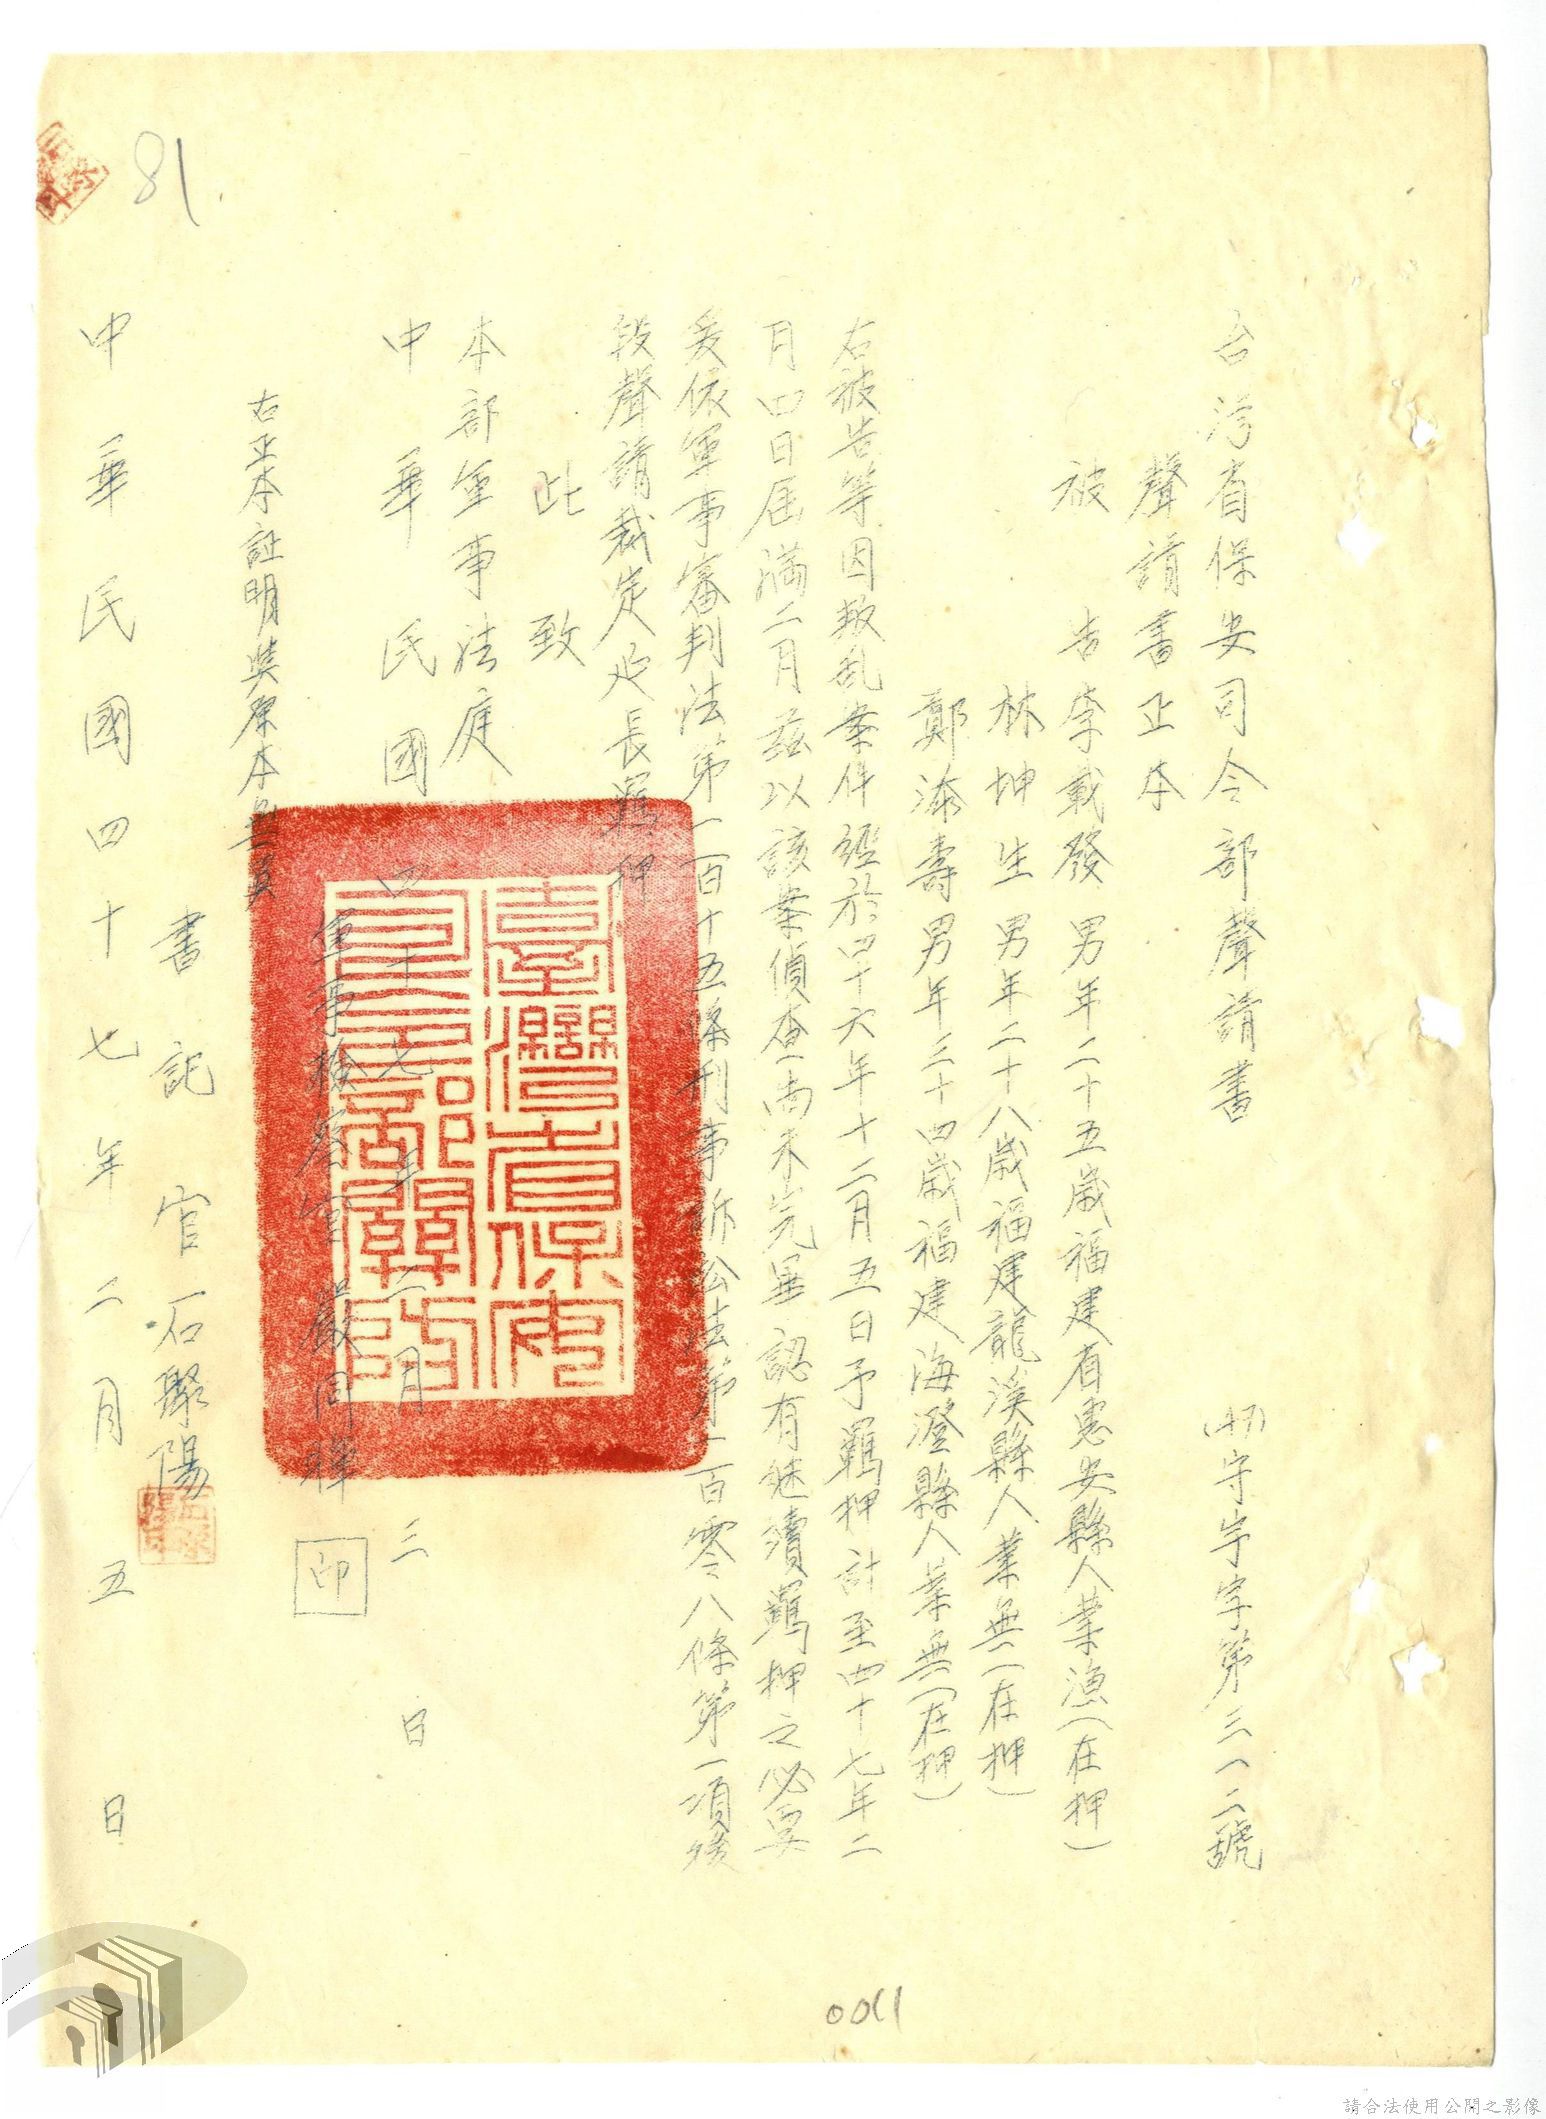 台湾省保安司令部聲請書
(47)守宇字第三一二號
聲請書正本
被告李載發男年二十五歲福建省惠安縣人業漁(在押)
林坤生男年二十八歲福建龍溪縣人業無(在押)
鄭添壽男年三十四歲福建海澄縣人業無(在押)
右被告等因叛乱案件經於四十六年十二月五日予羈押計至四十七年二
月四日屆滿二月茲以該案偵查尚未完畢認有继續羈押之必要
爰依軍事審判法第一百十五條刑事訴訟法第一百零八條第一項後
段聲請裁定延長羈押
此致
本部軍事法庭
中華民國四十七年二月三日
軍事檢察官嚴 印
右正本証明與原本無異
書記官石聚陽
中華民國四十七年二月五日
81
0011
請合法使用公開之影像